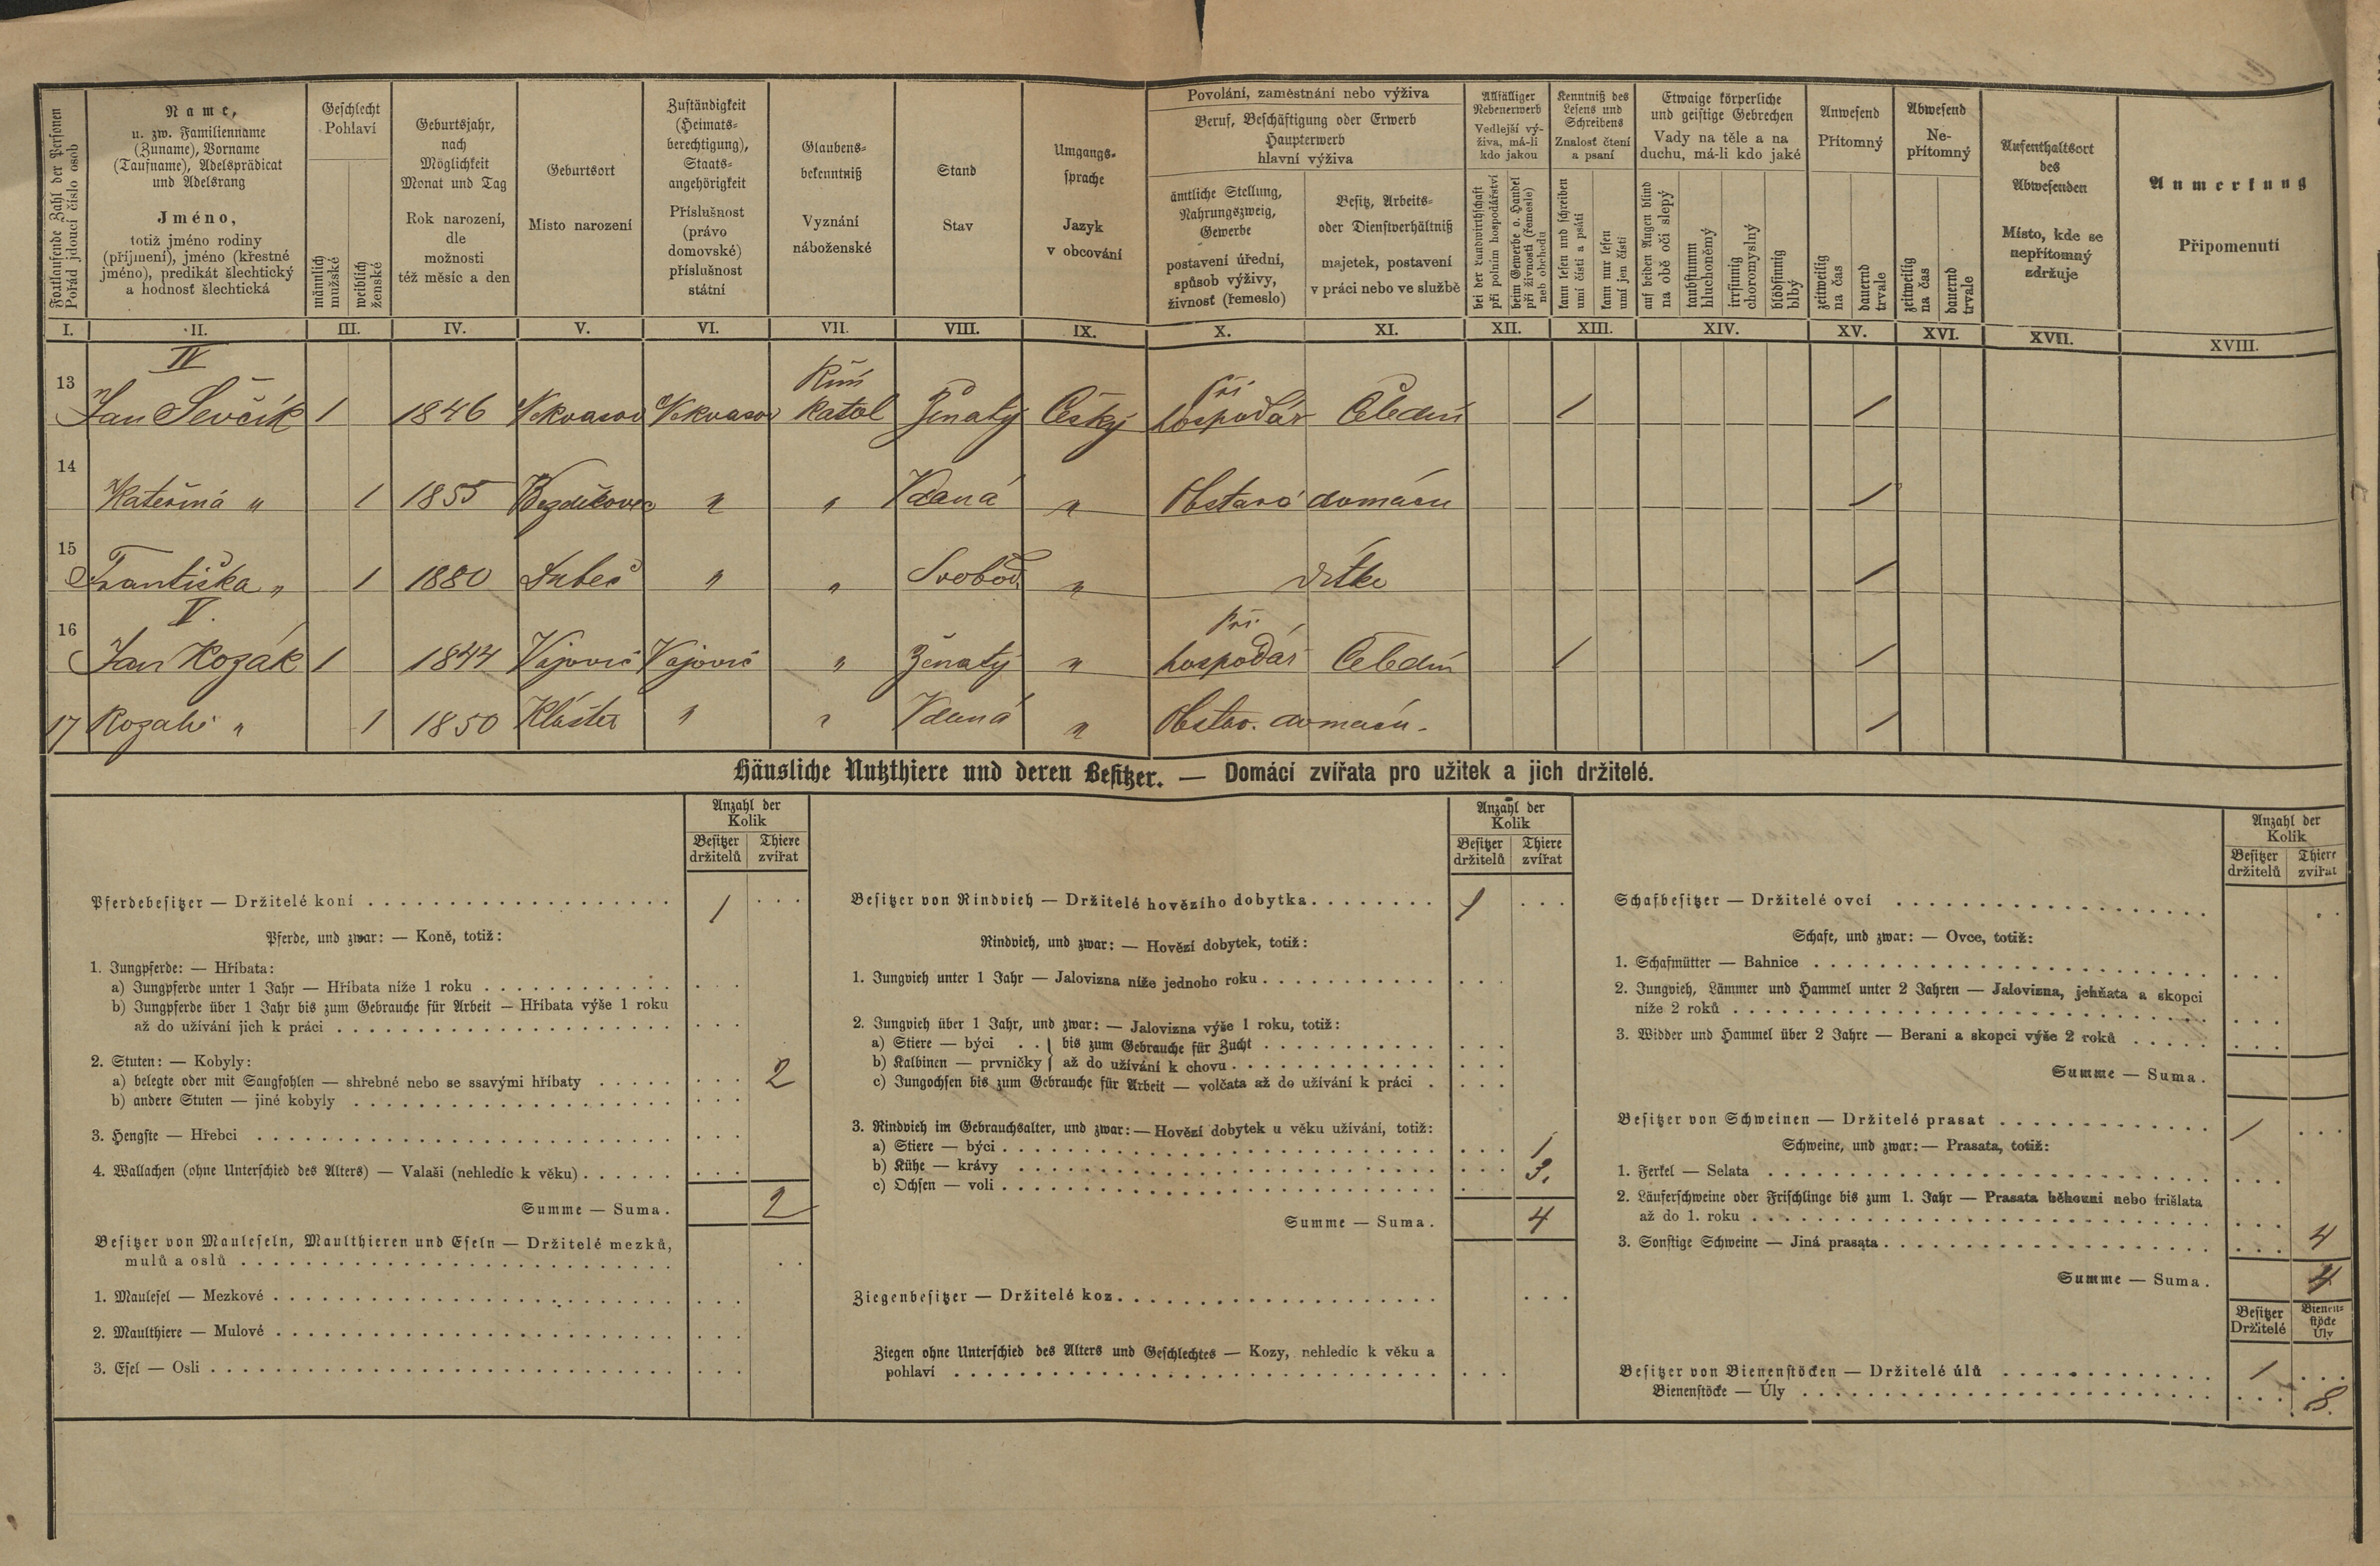 Fortlaufende Zahl der Personen
Pořád jdoucí číslo osob
Name,
u. zw. Familienname
(Zuname), Vorname
(Taufname), Adelsprädicat
und Adelsrang
Jméno,
totiž jméno rodiny
(příjmení), jméno (křestné
jméno), predikát šlechtický
a hodnost šlechtická
Geschlecht
Pohlaví
männlich
mužské
weiblich
ženské
Geburtsjahr,
nach
Möglichkeit
Monat und Tag
Rok narození,
dle
možnosti
též měsíc a den
Geburtsort
Místo narození
Zuständigkeit
(Heimats-
berechtigung),
Staats-
angehörigkeit
Příslušnost
(právo
domovské)
příslušnost
státní
Glaubens-
bekenntniß
Vyznání
náboženské
Stand
Stav
Umgangs-
sprache
Jazyk
v obcování
Povolání, zaměstnání nebo výživa
Beruf, Beschäftigung oder Erwerb
Haupterwerb
hlavní výživa
ämtliche Stellung,
Nahrungszweig,
Gewerbe
postavení úřední,
spůsob výživy,
živnost (řemeslo)
Besitz, Arbeits-
oder Dienstverhältniß
majetek, postavení
v práci nebo ve službě
Allfälliger
Nebenerwerb
Vedlejší vý-
živa, má-li
kdo jakou
bei der Landwirthschaft
při polním hospodářství
beim Gewerbe o. Handel
při živnosti (řemeslo)
neb obchodu
Kenntniß des
Lesens und
Schreibens
Znalost čtení
a psaní
kann lesen und schreiben
umí čísti a psáti
kann nur lesen
umí jen čísti
Etwaige körperliche
und geistige Gebrechen
Vady na těle a na
duchu, má-li kdo jaké
auf beiden Augen blind
na obě oči slepý
taubstumm
hluchoněmý
irrsinnig
choromyslný
blödsinnig
blbý
Anwesend
Přítomný
zeitweilig
na čas
dauernd
trvale
Abwesend
Ne-
přítomný
zeitweilig
na čas
dauernd
trvale
Aufenthaltsort
des
Abwesenden
Místo, kde se
nepřítomný
zdržuje
Anmerkung
Připomenutí
I. II. III. IV. V. VI. VII. VIII. IX. X. XI. XII. XIII. XIV. XV. XVI. XVII. XVIII.
IV
13 Jan Ševčík 1 1846 Nekvasov Nekvasov Řím katol Ženatý Český při hospodář Čeledín / /
14 Kateřina " 1 1855 " " Vdaná " Obstará domácn /
15 Františka " 1 1880 " " Svobod. " dítko /
V.
16 Jan Kozák 1 1844 " Ženatý " Při hospodář Čeledín / /
17 Rozalie " 1 1850 Klášter " " Vdaná " Obstar. domácn. /
Häusliche Nutzthiere und deren Besitzer. — Domácí zvířata pro užitek a jich držitelé.
Anzahl der
Kolik
Besitzer
držitelů
Thiere
zvířat
Pferdebesitzer — Držitelé koní 1
Pferde, und zwar: — Koně, totiž:
1. Jungpferde: — Hříbata:
a) Jungpferde unter 1 Jahr — Hříbata níže 1 roku
b) Jungpferde über 1 Jahr bis zum Gebrauche für Arbeit — Hříbata výše 1 roku
až do užívání jich k práci
2. Stuten: — Kobyly:
a) belegte oder mit Saugfohlen — shřebné nebo se ssavými hříbaty 2
b) andere Stuten — jiné kobyly
3. Hengste — Hřebci
4. Wallachen (ohne Unterschied des Alters) — Valaši (nehledíc k věku)
Summe — Suma. 2
Besitzer von Mauleseln, Maulthieren und Eseln — Držitelé mezků,
mulů a oslů
1. Maulesel — Mezkové
2. Maulthiere — Mulové
3. Esel — Osli
Anzahl der
Kolik
Besitzer
držitelů
Thiere
zvířat
Besitzer von Rindvieh — Držitelé hovězího dobytka 1
Rindvieh, und zwar: — Hovězí dobytek, totiž:
1. Jungvieh unter 1 Jahr — Jalovizna níže jednoho roku
2. Jungvieh über 1 Jahr, und zwar: — Jalovizna výše 1 roku, totiž:
a) Stiere — býci } bis zum Gebrauche für Zucht
b) Kalbinen — prvničky } až do užívání k chovu
c) Jungochsen bis zum Gebrauche für Arbeit — volčata až do užívání k práci
3. Rindvieh im Gebrauchsalter, und zwar: — Hovězí dobytek u věku užívání, totiž:
a) Stiere — býci 1
b) Kühe — krávy 3.
c) Ochsen — voli
Summe — Suma. 4
Ziegenbesitzer — Držitelé koz
Ziegen ohne Unterschied des Alters und Geschlechtes — Kozy, nehledíc k věku a
pohlaví
Anzahl der
Kolik
Besitzer
držitelů
Thiere
zvířat
Schafbesitzer — Držitelé ovcí
Schafe, und zwar: — Ovce, totiž:
1. Schafmütter — Bahnice
2. Jungvieh, Lämmer und Hammel unter 2 Jahren — Jalovizna, jehňata a skopci
níže 2 roků
3. Widder und Hammel über 2 Jahre — Berani a skopci výše 2 roků
Summe — Suma.
Besitzer von Schweinen — Držitelé prasat 1
Schweine, und zwar: — Prasata, totiž:
1. Ferkel — Selata
2. Läuferschweine oder Frischlinge bis zum 1. Jahr — Prasata běhouni nebo frišlata
až do 1. roku
3. Sonstige Schweine — Jiná prasata 4
Summe — Suma. 4
Besitzer
Držitelé
Bienen-
stöcke
Úly
Besitzer von Bienenstöcken — Držitelé úlů 1
Bienenstöcke — Úly 8.